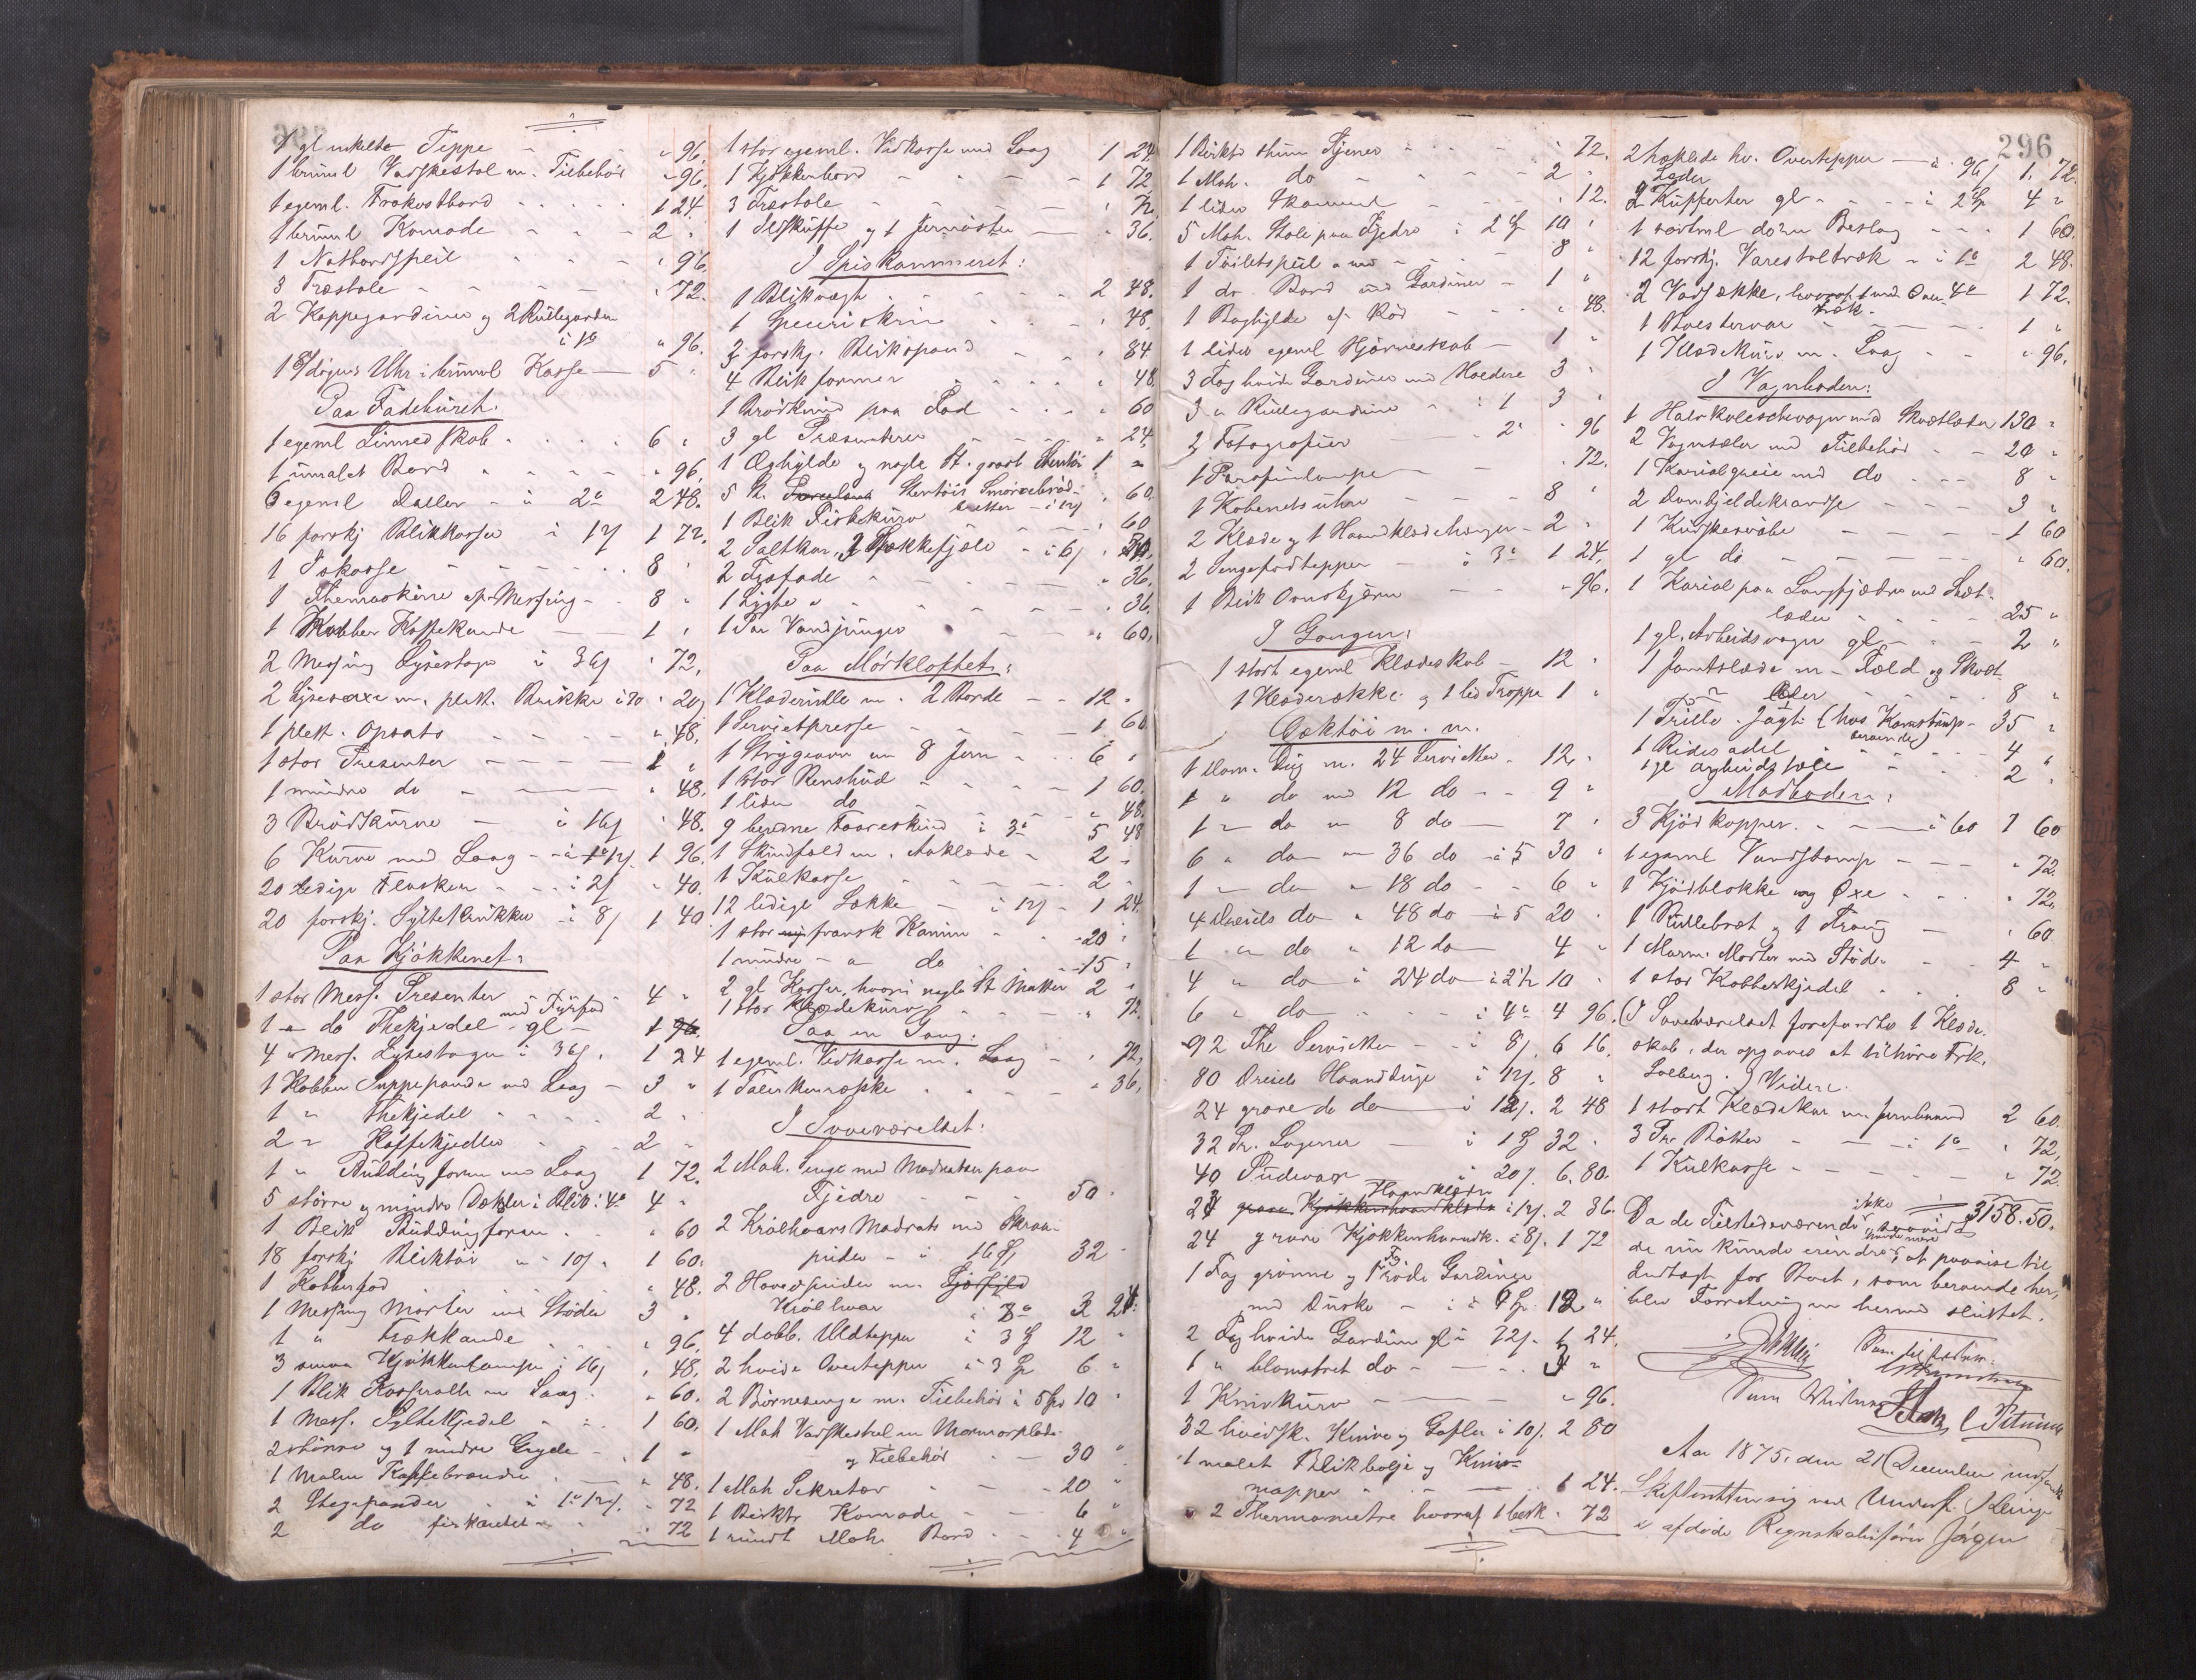 1 gl enkelt Teppe - - " 96.
1 brunml Vadskestol m. Tilbehør " 96.
1 egeml. Frokostbord . . . . . 1 24.
1 brunml Komode - - - 2 "
1 Natbordspeil . . . . " 96.
3 Træstole - - - - - " 72.
2 Kappegardiner og 2 Rullegardiner
à 1ª " 96.
1 8/dagers Uhr i brunml Kasse — 5 "
Paa Fadeburet.
1 egeml Linnedskab . . . . 6 "
1 umalet Bord - - - - " 96.
6 egeml Daller - à 2ª 2 48.
16 forskj Blikkasser à 12ſ 1 72.
1 Iskasse - - - - - 8 "
1 Themaskine af Messing - - 8 "
1 Kobber Kaffekande — 1 "
2 Messing Lysestager à 36ſ " 72.
2 Lysesaxe m. plett. Brikke à 10 " 20
1 plett. Opsats - - - - " 48.
1 stor Presenter - - - - 1 "
1 mindre do - — " 48.
3 Brødkurve - à 16ſ " 48.
6 Kurve med Laag - - à 1ª12ſ 1 96.
20 ledige Flasker - - - à 2ſ " 40.
20 forskj. Syltekrukker - à 8ſ 1 40
Paa Kjøkkenet.
1 stor Mess. Presenter 4 "
med Fyrfad
1 " do Thekjedel - gl - 1 96.
4 " Mess. Lysestager à 36ſ. 1 24
1 Kobber Suppepande med Laag - 3 "
1 " Thekjedel - - - - 2 "
2 " Kaffekjedler - - 2 "
1 " Pudding form med Laag 1 72.
5 større og mindre Dækler i Blik: 4ª 4 "
1 Blik Puddingform . . " 60
18 forskj Bliktøi " 10ſ. 1 60.
1 Kobberfad . . . " 48.
1 Messing Morter med Støder 3 "
1 " Trækkande . . . " 96.
3 smaa Kjøkkenlamper à 16ſ " 48.
1 Blik Kasserolle m Laag. " 60.
1 Mess. Syltekjedel - - - 1 60.
2 større og 1 mindre Gryde - 1 "
1 Malm Kaffebrænder . — " 48.
2 Stegepander " à 1ª12ſ. " 72
2 do firkantet - " 72
1 stor egeml. Vedkasse med Laag 1 24
1 Kjøkkenbord - - - - 1 72.
3 Træstole - - - - " 72.
1 Ildskuffe og 1 Jernrister — " 36.
I Spiskammeret:
1 Blikvægt . . . . . 2 48.
1 Specerikrin - - - - " 48.
3 forskj. Blikspand - - " 84
4 Blik former - - - - " 48
1 Brødkniv paa Fod - - - " 60
3 gl Presenterer - - - " 24.
1 Æghylde og nogle St. groft Stentøi 1 "
5 St. Porcelæns Stentøis Smørrebrød-
bretter - à 12ſ " 60.
1 Blik Fiskekurv - - - - " 60
2 Saltkar, 3 Hakkefjæle - à 6ſ " 30.
2 Træfade - - - - - " 36.
1 Lygte " - - - - - " 36.
1 Par Vandjunger - - - " 60.
Paa Mørkloftet:
1 Klæderulle m. 2 Borde - - 12 "
1 Servietpresse - - - - 1 60
1 Strygeovn m 8 Jern - - - 6 "
1 stor Renshud - - - - 1 60.
1 liden do - - - - - " 48.
9 beredne Faareskind à 3ª 5 48
1 Skindfeld m. Aaklæde - 2 "
1 Kulkasse - - - - - 2 "
12 ledige Sække - à 12ſ - 1 24.
1 stor ny fransk Kamin - - 20 "
1 mindre - " do - - 15 "
2 gl Kasser, hvori nogle St Matter 2 "
1 stor Klædekurv . . . . " 72.
Paa en Gang:
1 egeml. Vedkasse m. Laag - " 72.
1 Tallerkenrække . . . . " 36.
I Soveværelset:
2 Mah. Senge med Madratser paa
Fjedre - - - 50 "
2 Krølhaars Madrats med Skraa-
puder - à 16 Sp 32 "
2 Hovedpuder m. Sjøsfyld
Krølhaar à 3ª 3 24.
4 dobb. Uldtepper à 3 Sp 12 "
2 hvide Overtepper à 3 Sp 6 "
2 Børnesenge m. Tilbehør à 5 Sp 10 "
1 Mah Vadskestel m Marmorplade
og Tilbehør - - 30 "
1 Mah Sekretær - - - 20 "
1 Birktr Komode - - - 6 "
1 rundt Mah. Bord - - - 4 "
296
1 Birktr stum Tjener - - - - " 72.
1 Mah. do - - - - - 2 "
1 liden Skammel - - - - " 12.
5 Mah. Stole paa Fjedre à 2 Sp 10 "
1 Toiletspeil " med - - - - 8 "
1 do. Bord med Gardiner - 1 "
1 Boghylde af Rør - - - " 48.
1 liden egeml Hjørneskab - 1 "
3 Fag hvide Gardiner med Holdere 3 "
3 " Rullegardiner - à 1 3 "
2 Fotografier - - — 2ª " 96
1 Parafinlampe - - - - " 72.
1 Kabinetsuhr - - - - 8 "
2 Klæde og 1 Haandklædehænger - 2 "
2 Sengefodtepper - à 3ª 1 24.
1 Blik Ovnskjærm - - " 96.
I Gangen:
1 stort egeml Klædeskab - 12 "
1 Klæderække og 1 lid Trappe 1 "
Dæktøi m. m.
1 Dam. Dug m. 24 Servietter - 12 "
1 " do med 12 do - - 9 "
1 " do " 8 do — 7 "
6 " do " 36 do - à 5 30 "
1 " do " 18 do - - 6 "
4 Dreiels do " 48 do à 5 20 "
1 " do " 12 do — 4 "
4 " do à 24 do à 2½ 10 "
6 " do - - - - à 4ª 4 96.
92 The Servietter - - à 8ſ. 6 16.
80 Dreiels Haanduge à 12ſ. 8 "
24 grove do do — à 12ſ. 2 48
32 Pr. Lagener — à 1 Sp 32 "
40 Pudevaar à 20ſ. 6. 80.
Haandklæder
24 grove Kjøkkenhaandklæde à 12ſ. 2 36.
24 grove Kjøkkenhaandk. à 8ſ. 1 72
1 Fag grønne og 1 Fg. røde Gardiner
med Duske - à 12 "
2 Fag hvide Gardiner gl à 72ſ. 1 24.
1 " blomstret do - - - "
1 Knivkurv — — " 96.
32 hvidsk. Knive og Gafler à 10ſ. 2 80
1 malet Blikbalje og Kniv-
mapper - - - — 1 24.
2 Thermometre hvoraf 1 bræk. " 72
2 hæklede hv. Overtepper — à 96ſ 1. 72.
Læder
2 Kufferter gl - - - - à 2 Sp 4 "
1 sortml do m Beslag - - - 1 60.
12 forskj. Varestoltræk - à 1ª 2 48.
2 Vadsække, hvoraf 1 med Over- 4ª 1 72.
træk.
1 — — — 1 "
1 Klædekurv m. Laag - - " 96.
I Vognboden:
1 Halvkaleschevogn med Skvætlæder 130 "
2 Vognseler med Tilbehør - - 20 "
1 Karjolgreie med do - - - 8 "
2 Dombjeldekrandse - - - 3 "
1 Kuskekaabe - - - - 1 60
1 gl do - - - - - " 60.
1 Karjol paa Langfjædre med Skvæt-
læder - - - - 25 "
1 gl. Arbeidsvogn gl - - - 2 "
1 Jernslæde m - Fæld og Skvæt
læder - - - 8 "
1 Trille - Jagt (hos Karmstump 35 "
beroende)
1 Ridesadel - - - - - 4 "
1 gl arbeidssæle - - - - 2 "
I Madboden:
3 Kjødkopper. - - — à 60 1 60
1 egeml Vandstamp - - - " 72.
1 Kjødblokke og Øxe - - - " 72.
1 Rullebræt og 1 Traug — " 60
1 Marm. Morter med Støder - - 4 "
1 stor Kobberkjedel . . . 8 "
(I Soveværelset forefandtes 1 Klæde-
skab, der opgaves at tilhøre Frk.
Solberg.) Videre.
1 stort Klædekar m Jernbaand 2 60.
3 Træ Bøtter - - - - à 1ª " 72.
1 Kulkasse - - - - - " 72.
3158. 50.
Da de Tilstedeværende ikke
de nu kunde erindre at paavise til
Indtægt for Boet, som beroende her,
blev Forretningen hermed sluttet.
Som Vidner:
Aar 1875, den 21 December indfandt
Skifteretten sig ved Underf. J Lange
i afdøde Regnskabsfører Jørgen